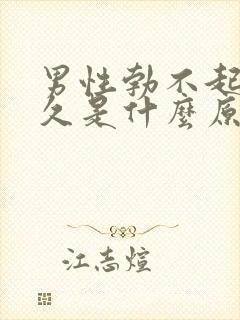 男性勃不起
久是什麽原
江志煊